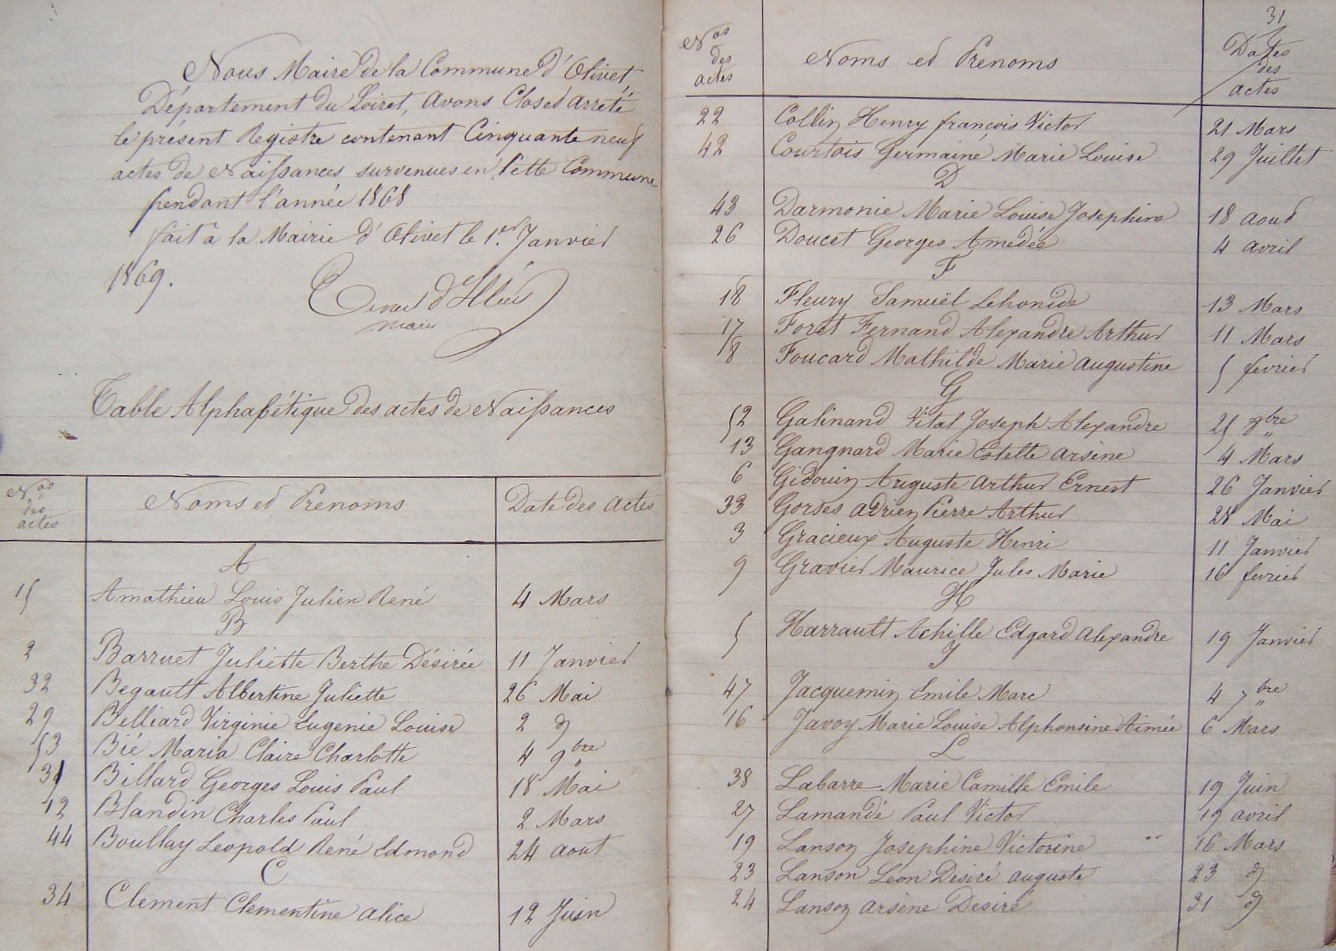 Nous Maire de la Commune d'Olivet
Département du Loiret, Avons Clos et arrêté
le présent Registre contenant Cinquante neuf
actes de Naissances survenues en Cette Commune
pendant l'année 1868
fait à la Mairie d'Olivet le 1er Janvier
1869.
maire
Table Alphabétique des actes de Naissances
Nos des actes Noms et Prenoms Date des Actes
A
15 Amathieu Louis Julien René 4 Mars
B
2 Barruet Juliette Berthe Désirée 11 Janvier
32 Begault Albertine Juliette 26 Mai
29 Belliard Virginie Eugenie Louise 2 d
53 Bié Maria Claire Charlotte 4 9bre
31 Billard Georges Louis Paul 18 Mai
12 Blandin Charles Paul 2 Mars
44 Boullay Leopold René Edmond 24 aout
C
34 Clement Clementine Alice 12 Juin
31
Nos des actes Noms et Prenoms Dates des actes
22 Collin Henry françois Victor 21 Mars
42 Courtois Germaine Marie Louise 29 Juillet
D
43 Darmonie Marie Louise Josephine 18 aout
26 Doucet Georges Amedée 4 avril
F
18 Fleury Samuël Lehonide 13 Mars
17 Foret Fernand Alexandre Arthur 11 Mars
8 Foucard Mathilde Marie Augustine 5 fevrier
G
52 Galinand Vital Joseph Alexandre 25 8bre
13 Gangnard Marie Estelle Arsène 4 Mars
6 Gidouin Auguste Arthur Ernest 26 Janvier
33 Gorses Adrien Pierre Arthur 28 Mai
3 Gracieux Auguste Henri 11 Janvier
9 Gravier Maurice Jules Marie 16 fevrier
H
5 Harrault Achille Edgard Alexandre 19 Janvier
J
47 Jacquemin Emile Marc 4 7bre
16 Javoy Marie Louise Alphonsine Aimée 6 Mars
L
38 Labarre Marie Camille Emile 19 Juin
27 Lamandé Paul Victor 19 avril
19 Lanson Josephine Victorine 16 Mars
23 Lanson Léon Desiré auguste 23 d
24 Lanson Arsene Desiré 31 d